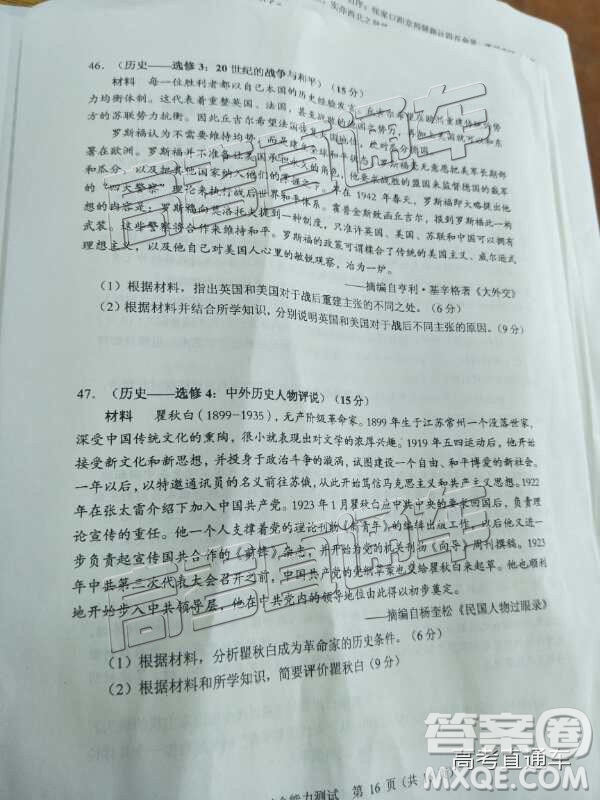 46. （历史——选修3：20世纪的战争与和平）（15分）
材料 每一位胜利者都以自己本国的历史经验发言。丘吉尔希望在欧洲重建传统的势
力均衡体制。这代表着重整英国、法国，甚至战败的德国的势力，再加上美国就可以和东
方的苏联势力抗衡。
罗斯福认为不需要维持均势，而是
署在欧洲。罗斯福并不准备让美国承担
和瓜分，以及把其他国家纳入他们的掌握之下。
的“四大警察”理论来执行战后世界和平体系。早在1942年春天，罗斯福即大略提出他
想的内容是：罗斯福向莫洛托夫提到一种制度，只准许英国、美国、苏联和中国可以拥有
武装。这些警察将合作来维持和平。罗斯福的政策可谓糅合了传统的美国主义、威尔逊式
理想主义，以及他自己对美国人心里的敏锐观察，冶为一炉。
——摘编自亨利·基辛格著《大外交》
（1）根据材料，指出英国和美国对于战后重建主张的不同之处。（6分）
（2）根据材料并结合所学知识，分别说明英国和美国对于战后不同主张的原因。（9分）
47. （历史——选修4：中外历史人物评说）（15分）
材料 瞿秋白（1899-1935），无产阶级革命家。1899年生于江苏常州一个没落世家，
深受中国传统文化的熏陶，很小就表现出对文学的浓厚兴趣。1919年五四运动后，他开始
接受新文化和新思想，并投身于政治斗争的漩涡，试图建设一个自由、和平博爱的新社会。
一年以后，以特邀通讯员的名义前往苏俄，从此开始笃信马克思主义和共产主义思想。1922
年在张太雷介绍下加入中国共产党。1923年1月瞿秋白应中共中央的要求回国后，负责理
论宣传的重任。他一个人支撑着党的理论刊物《新青年》的编辑出版工作，以后他又进一
步负责起宣传国共合作的《前锋》杂志，并开始为党的机关刊物《向导》周刊撰稿。1923
年中共第三次代表大会召开之前，中国共产党的党纲草案也交给瞿秋白来起草。他也顺利
地开始步入中共领导层，他在中共党内的领导地位由此得以初步奠定。
——摘编自杨奎松《民国人物过眼录》
（1）根据材料，分析瞿秋白成为革命家的历史条件。（6分）
（2）根据材料和所学知识，简要评价瞿秋白（9分）
能力测试 第16页（共
高考直通车
答案圈
MXQE.COM